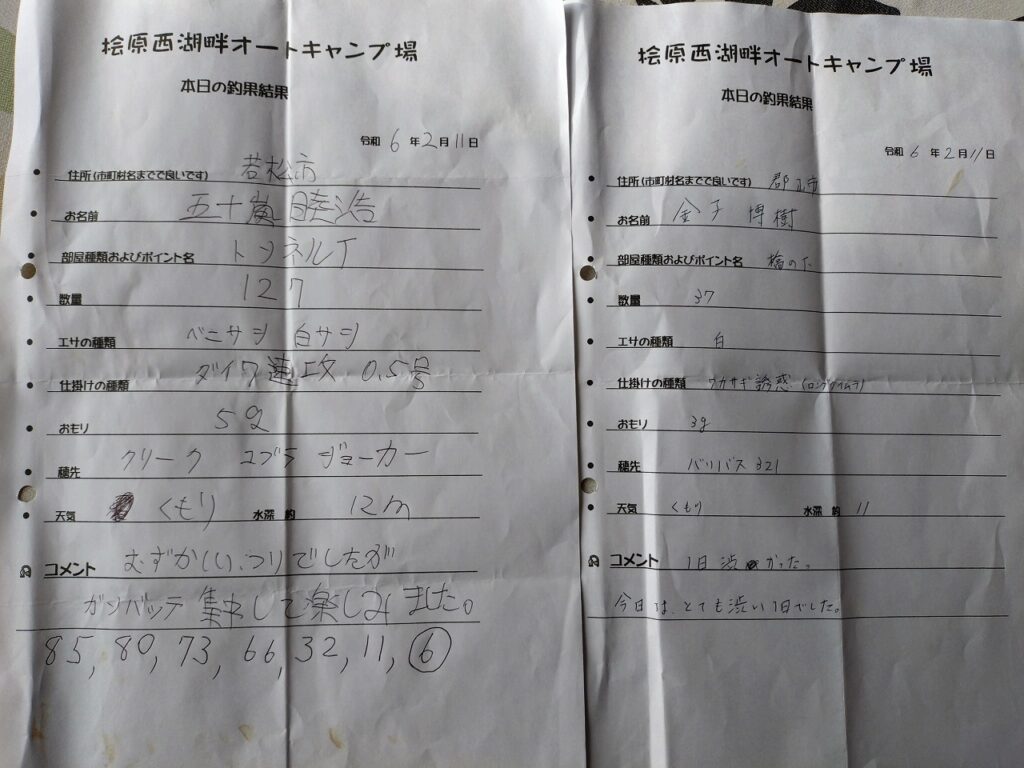 桧原西湖畔オートキャンプ場
本日の釣果結果
令和 6 年 2 月 11 日
住所(市町村名まででで良いです) 若松市
お名前 五十嵐 睦浩
部屋種類およびポイント名 トンネル丁
数量 127
エサの種類 ベニサシ 白サシ
仕掛けの種類 ダイワ速攻 0.5号
おもり 5g
穂先 クリーク コブラ ジョーカー
天気 くもり 水深 約 12m
コメント むずかしい、つりでしたが
ガンバッテ 集中して楽しみました。
85, 80, 73, 66, 32, 11, ⑥
桧原西湖畔オートキャンプ場
本日の釣果結果
令和 6 年 2 月 11 日
住所(市町村名まででで良いです) 郡山市
お名前 金子 博樹
部屋種類およびポイント名 橋の下
数量 37
エサの種類 白
仕掛けの種類 ワカサギ誘惑 (ロングタイム)
おもり 3g
穂先 バリバス 321
天気 くもり 水深 約 11
コメント 1日渋かった。
今日は、とても渋い1日でした。